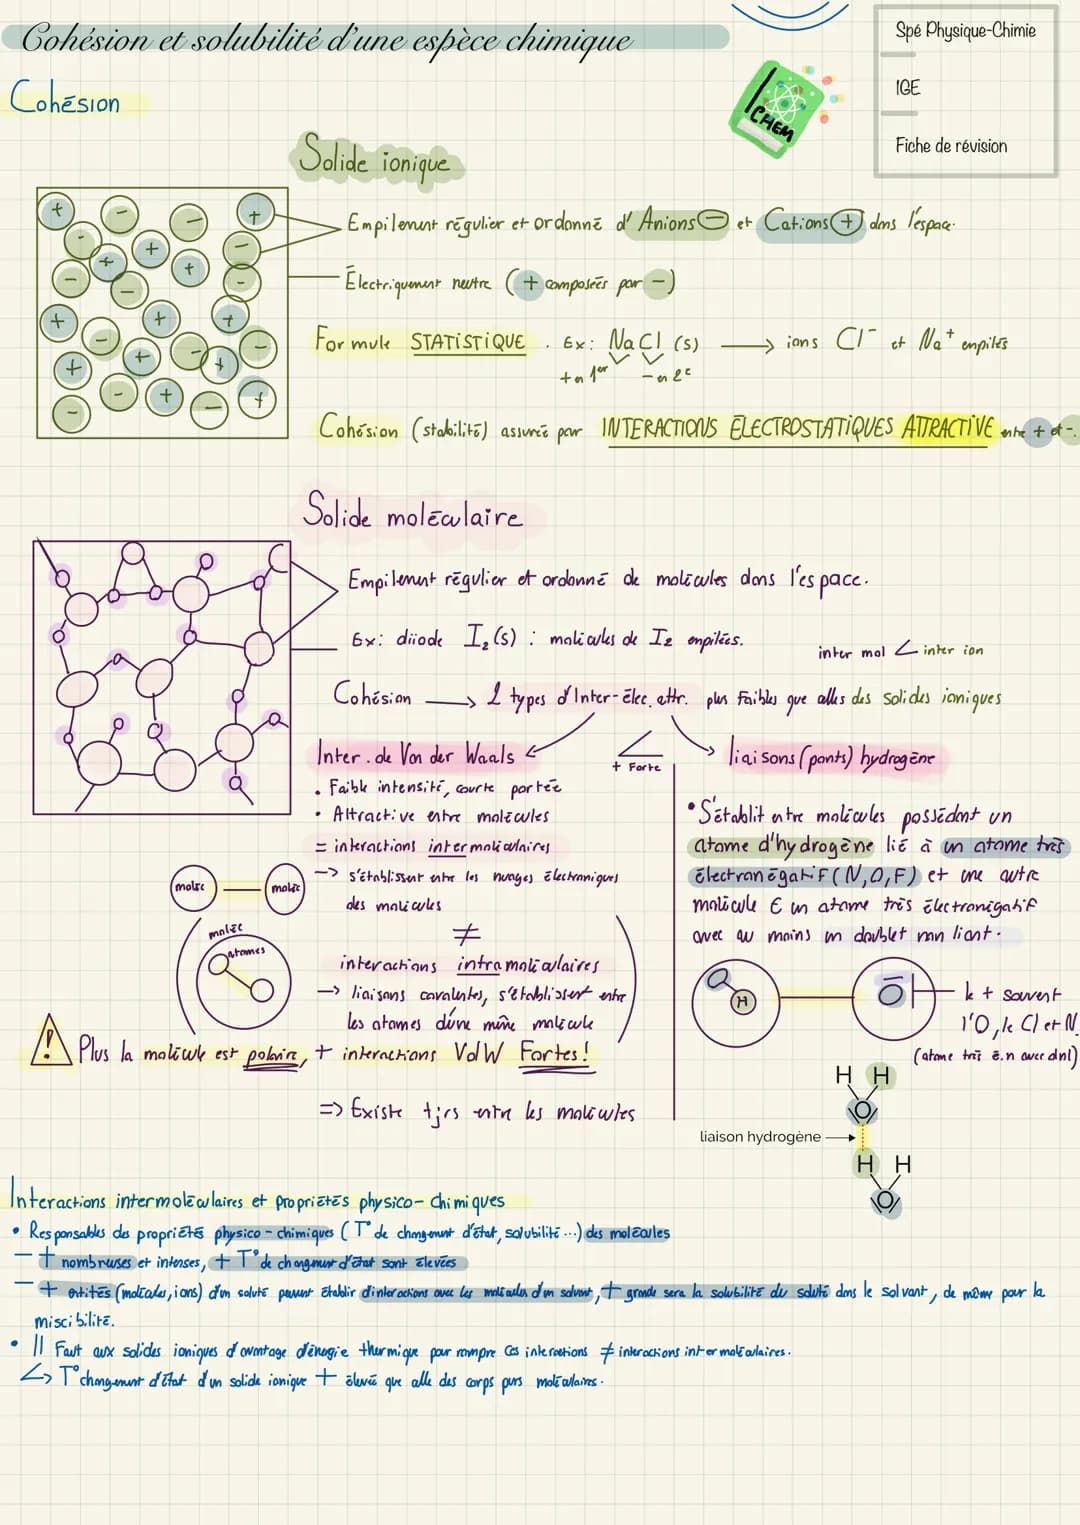 Cohésion et solubilité d'une espèce chimique
Spé Physique-Chimie
1GE
Fiche de révision
CHEM
Cohésion
Solide ionique
Empilement régulier et ordonné d'Anions ⊖ et Cations ⊕ dans l'espace.
Électriquement neutre (+ composées par -)
Formule STATISTIQUE. Ex: NaCl (s) → ions Cl⁻ et Na⁺ empilés
+ en 1er - en 2e
Cohésion (stabilité) assurée par INTERACTIONS ÉLECTROSTATIQUES ATTRACTIVE entre + et -.
Solide moléculaire
Empilement régulier et ordonné de molécules dans l'espace.
Ex: diiode I₂(s) : molécules de I₂ empilées.
inter mol < inter ion
Cohésion → 2 types d'Inter-élec. attr. plus faibles que celles des solides ioniques
Inter. de Van der Waals
< + Forte
liaisons (ponts) hydrogène
• Faible intensité, courte portée
• Attractive entre molécules
= interactions intermoléculaires
-> s'établissent entre les nuages électroniques
des molécules
moléc — moléc
≠
moléc
atomes
interactions intramoléculaires
-> liaisons covalentes, s'établissent entre
les atomes d'une même molécule
! Plus la molécule est polaire, + interactions VdW Fortes!
=> Existe tjrs entre les molécules
• S'établit entre molécules possédant un
atome d'hydrogène lié à un atome très
électronégatif (N,O,F) et une autre
molécule € un atome très électronégatif
avec au moins un doublet non liant.
H
O
le + souvent
l'O, le Cl et N.
(atome très é.n avec dnl)
H H
O
liaison hydrogène
H H
O
Interactions intermoléculaires et propriétés physico-chimiques
• Responsables des propriétés physico-chimiques (T° de changement d'état, solubilité...) des molécules
- + nombreuses et intenses, + T° de changement d'état sont élevées
- + entités (molécules, ions) d'un soluté peuvent établir d'interactions avec les molécules d'un solvant, + grande sera la solubilité du soluté dans le solvant, de même pour la
miscibilité.
• Il Faut aux solides ioniques d'avantage d'énergie thermique pour rompre ces interactions ≠ interactions intermoléculaires.
↳ T° changement d'état d'un solide ionique + élevée que celle des corps purs moléculaires.